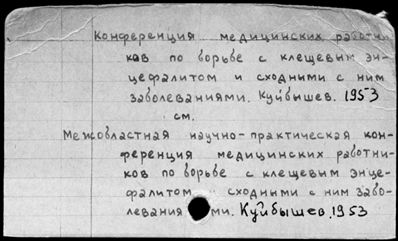 Конференция медицинских работни-
ков по борьбе с клещевым эн-
цефалитом и сходными с ним
заболеваниями. Куйбышев. 1953
см.
Межобластная научно-практическая кон-
ференция медицинских работни-
ков по борьбе с клещевым энце-
фалитом сходными с ним забо-
левания ми. Куйбышев. 1953